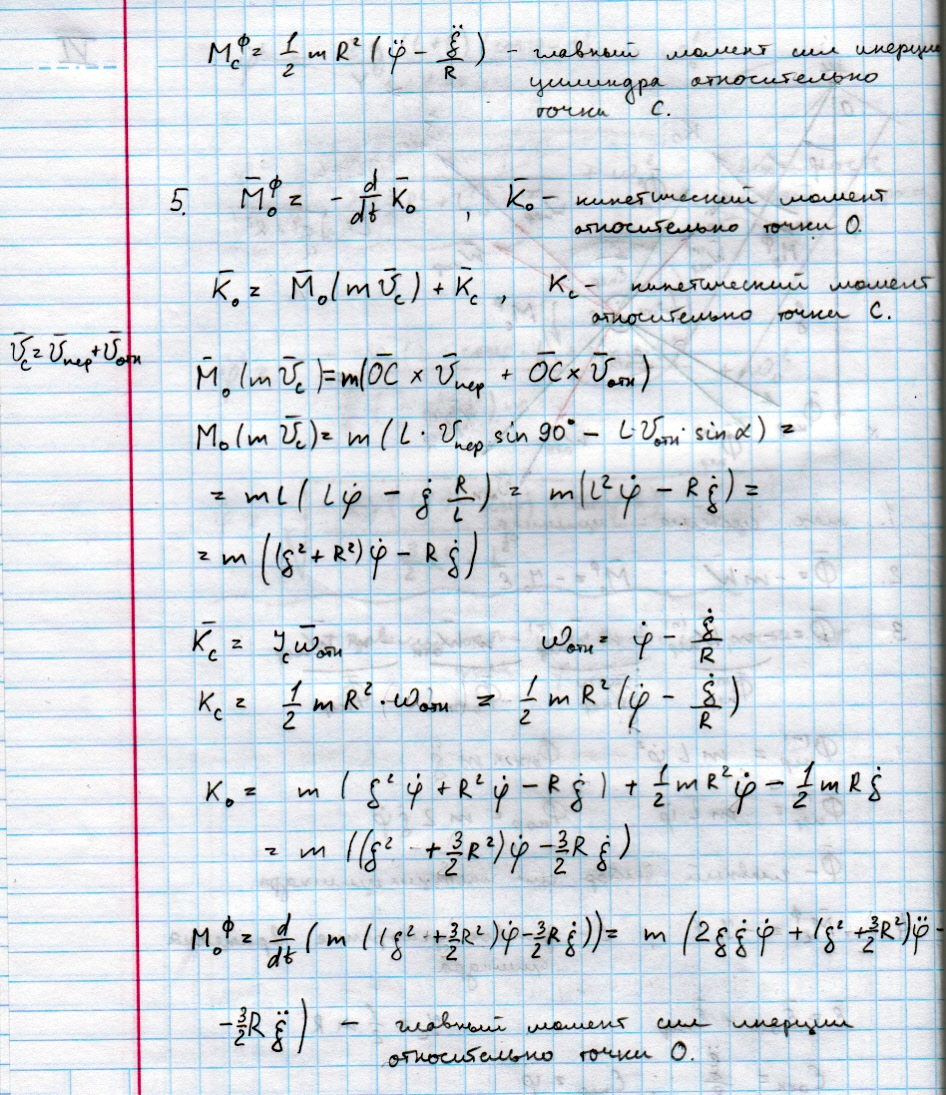 M_C^Ф = 1/2 m R² (φ̈ - ξ̈/R) - главный момент сил инерции
цилиндра относительно
точки C.
5. M̄_O^Ф = - d/dt K̄_O , K̄_O - кинетический момент
относительно точки O.
K̄_O = M̄_O(m v̄_C) + K̄_C , K_C - кинетический момент
относительно точки C.
v̄_C = v̄_пер + v̄_отн
M̄_O(m v̄_C) = m(O̅C̅ × v̄_пер + O̅C̅ × v̄_отн)
M_O(m v̄_C) = m (L · v_пер sin 90° - L · v_отн · sin α) =
= m L (L φ̇ - ξ̇ R/L) = m(L² φ̇ - R ξ̇) =
= m ((ξ² + R²) φ̇ - R ξ̇)
K̄_C = J_C ω̄_отн ω_отн = φ̇ - ξ̇/R
K_C = 1/2 m R² · ω_отн = 1/2 m R² (φ̇ - ξ̇/R)
K_O = m (ξ² φ̇ + R² φ̇ - R ξ̇) + 1/2 m R² φ̇ - 1/2 m R ξ̇
= m ((ξ² + 3/2 R²) φ̇ - 3/2 R ξ̇)
M_O^Ф = d/dt (m ((ξ² + 3/2 R²) φ̇ - 3/2 R ξ̇)) = m (2 ξ ξ̇ φ̇ + (ξ² + 3/2 R²) φ̈ -
- 3/2 R ξ̈) - главный момент сил инерции
относительно точки O.